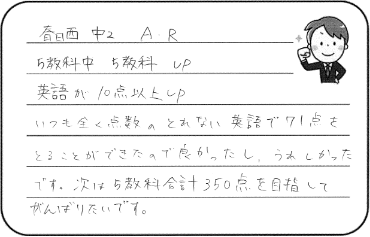 春日西 中2 A.R
5教科中 5教科 UP
英語が 10点以上UP
いつも全く点数のとれない英語で71点を
とることができたので良かったし、うれしかった
です。次は5教科合計350点を目指して
がんばりたいです。